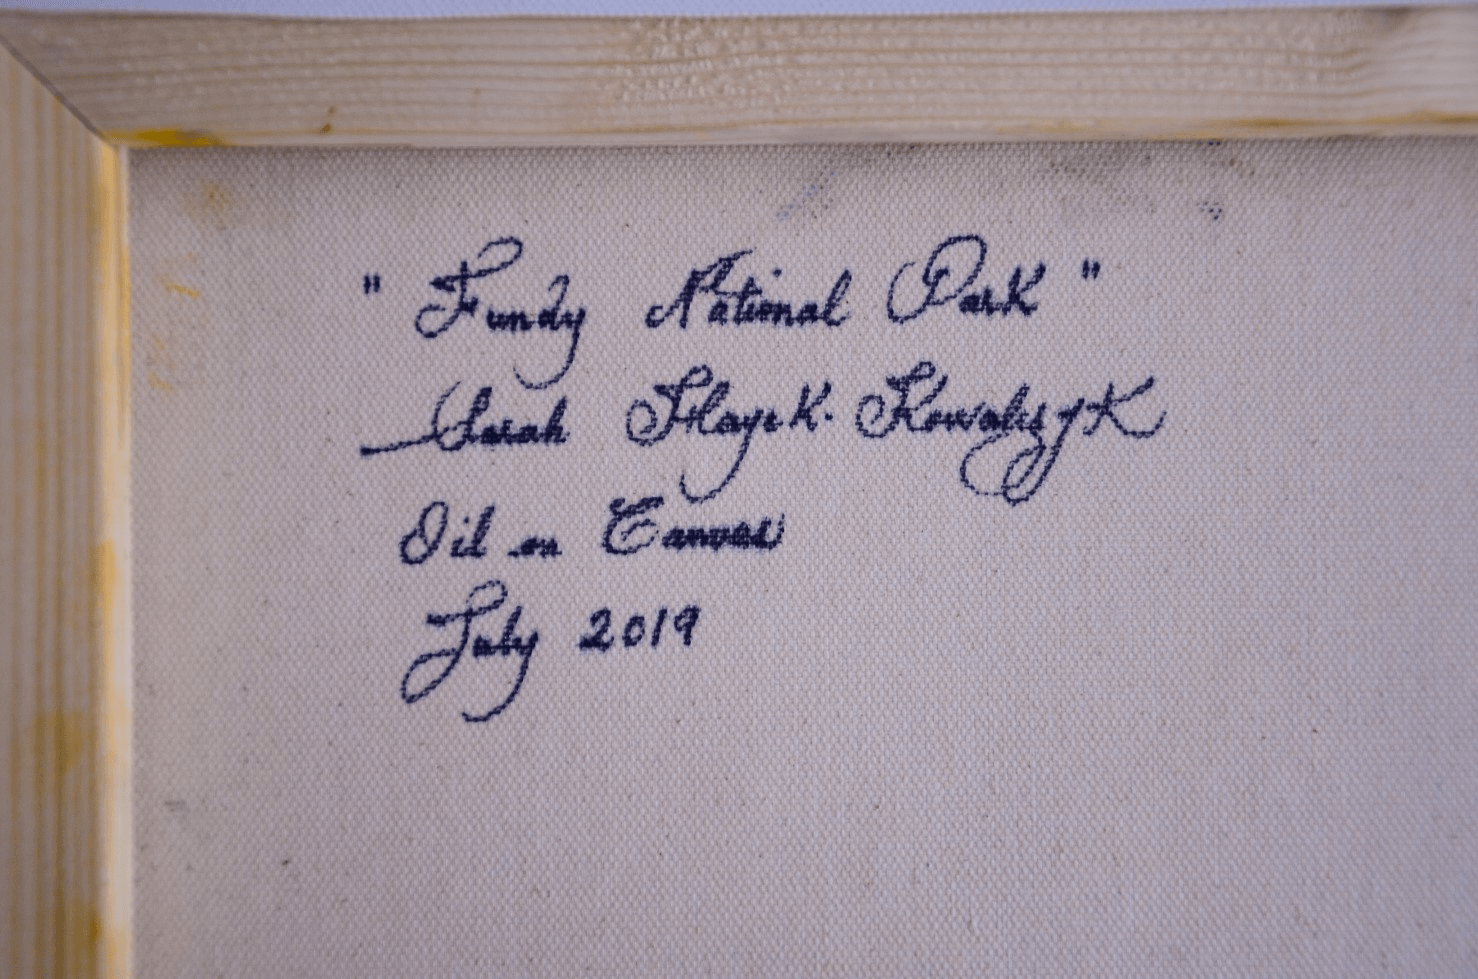 "Fundy National Park"
Sarah Hayek. Kowalczyk
Oil on Canvas
July 2019